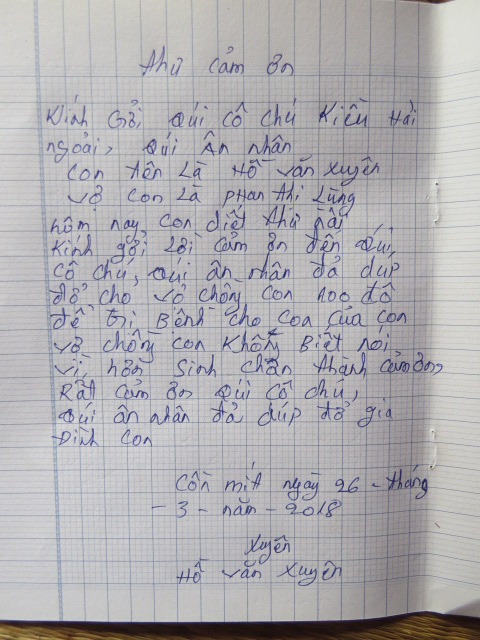 thư cảm ơn
Kính Gởi Quí cô chú Kiều Hải
ngoải, Quí Ân nhân
con tên Là Hồ văn xuyên
vợ con Là phan thị Lùng
hôm nay con diết thư nài
Kính gởi Lời cảm ơn đến Quí,
cô chú, Quí ân nhân đả dúp
đở cho vở chồng con 100 đô
để trị Bênh cho con của con
vở chồng con Không Biết nói
vì, hơn sinh chân thành cảm ơn,
Rất cảm ơn Quí cô chú,
Quí ân nhân đả dúp đở gia
Đình con
cồn mít ngaỳ 26 - tháng
- 3 - năm - 2018
xuyên
Hồ văn xuyên